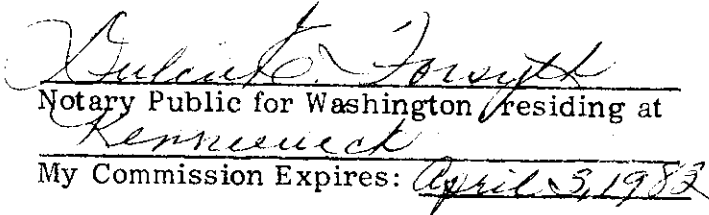 E. Forsyth
Notary Public for Washington residing at
Kennewick
My Commission Expires: April 3, 1982